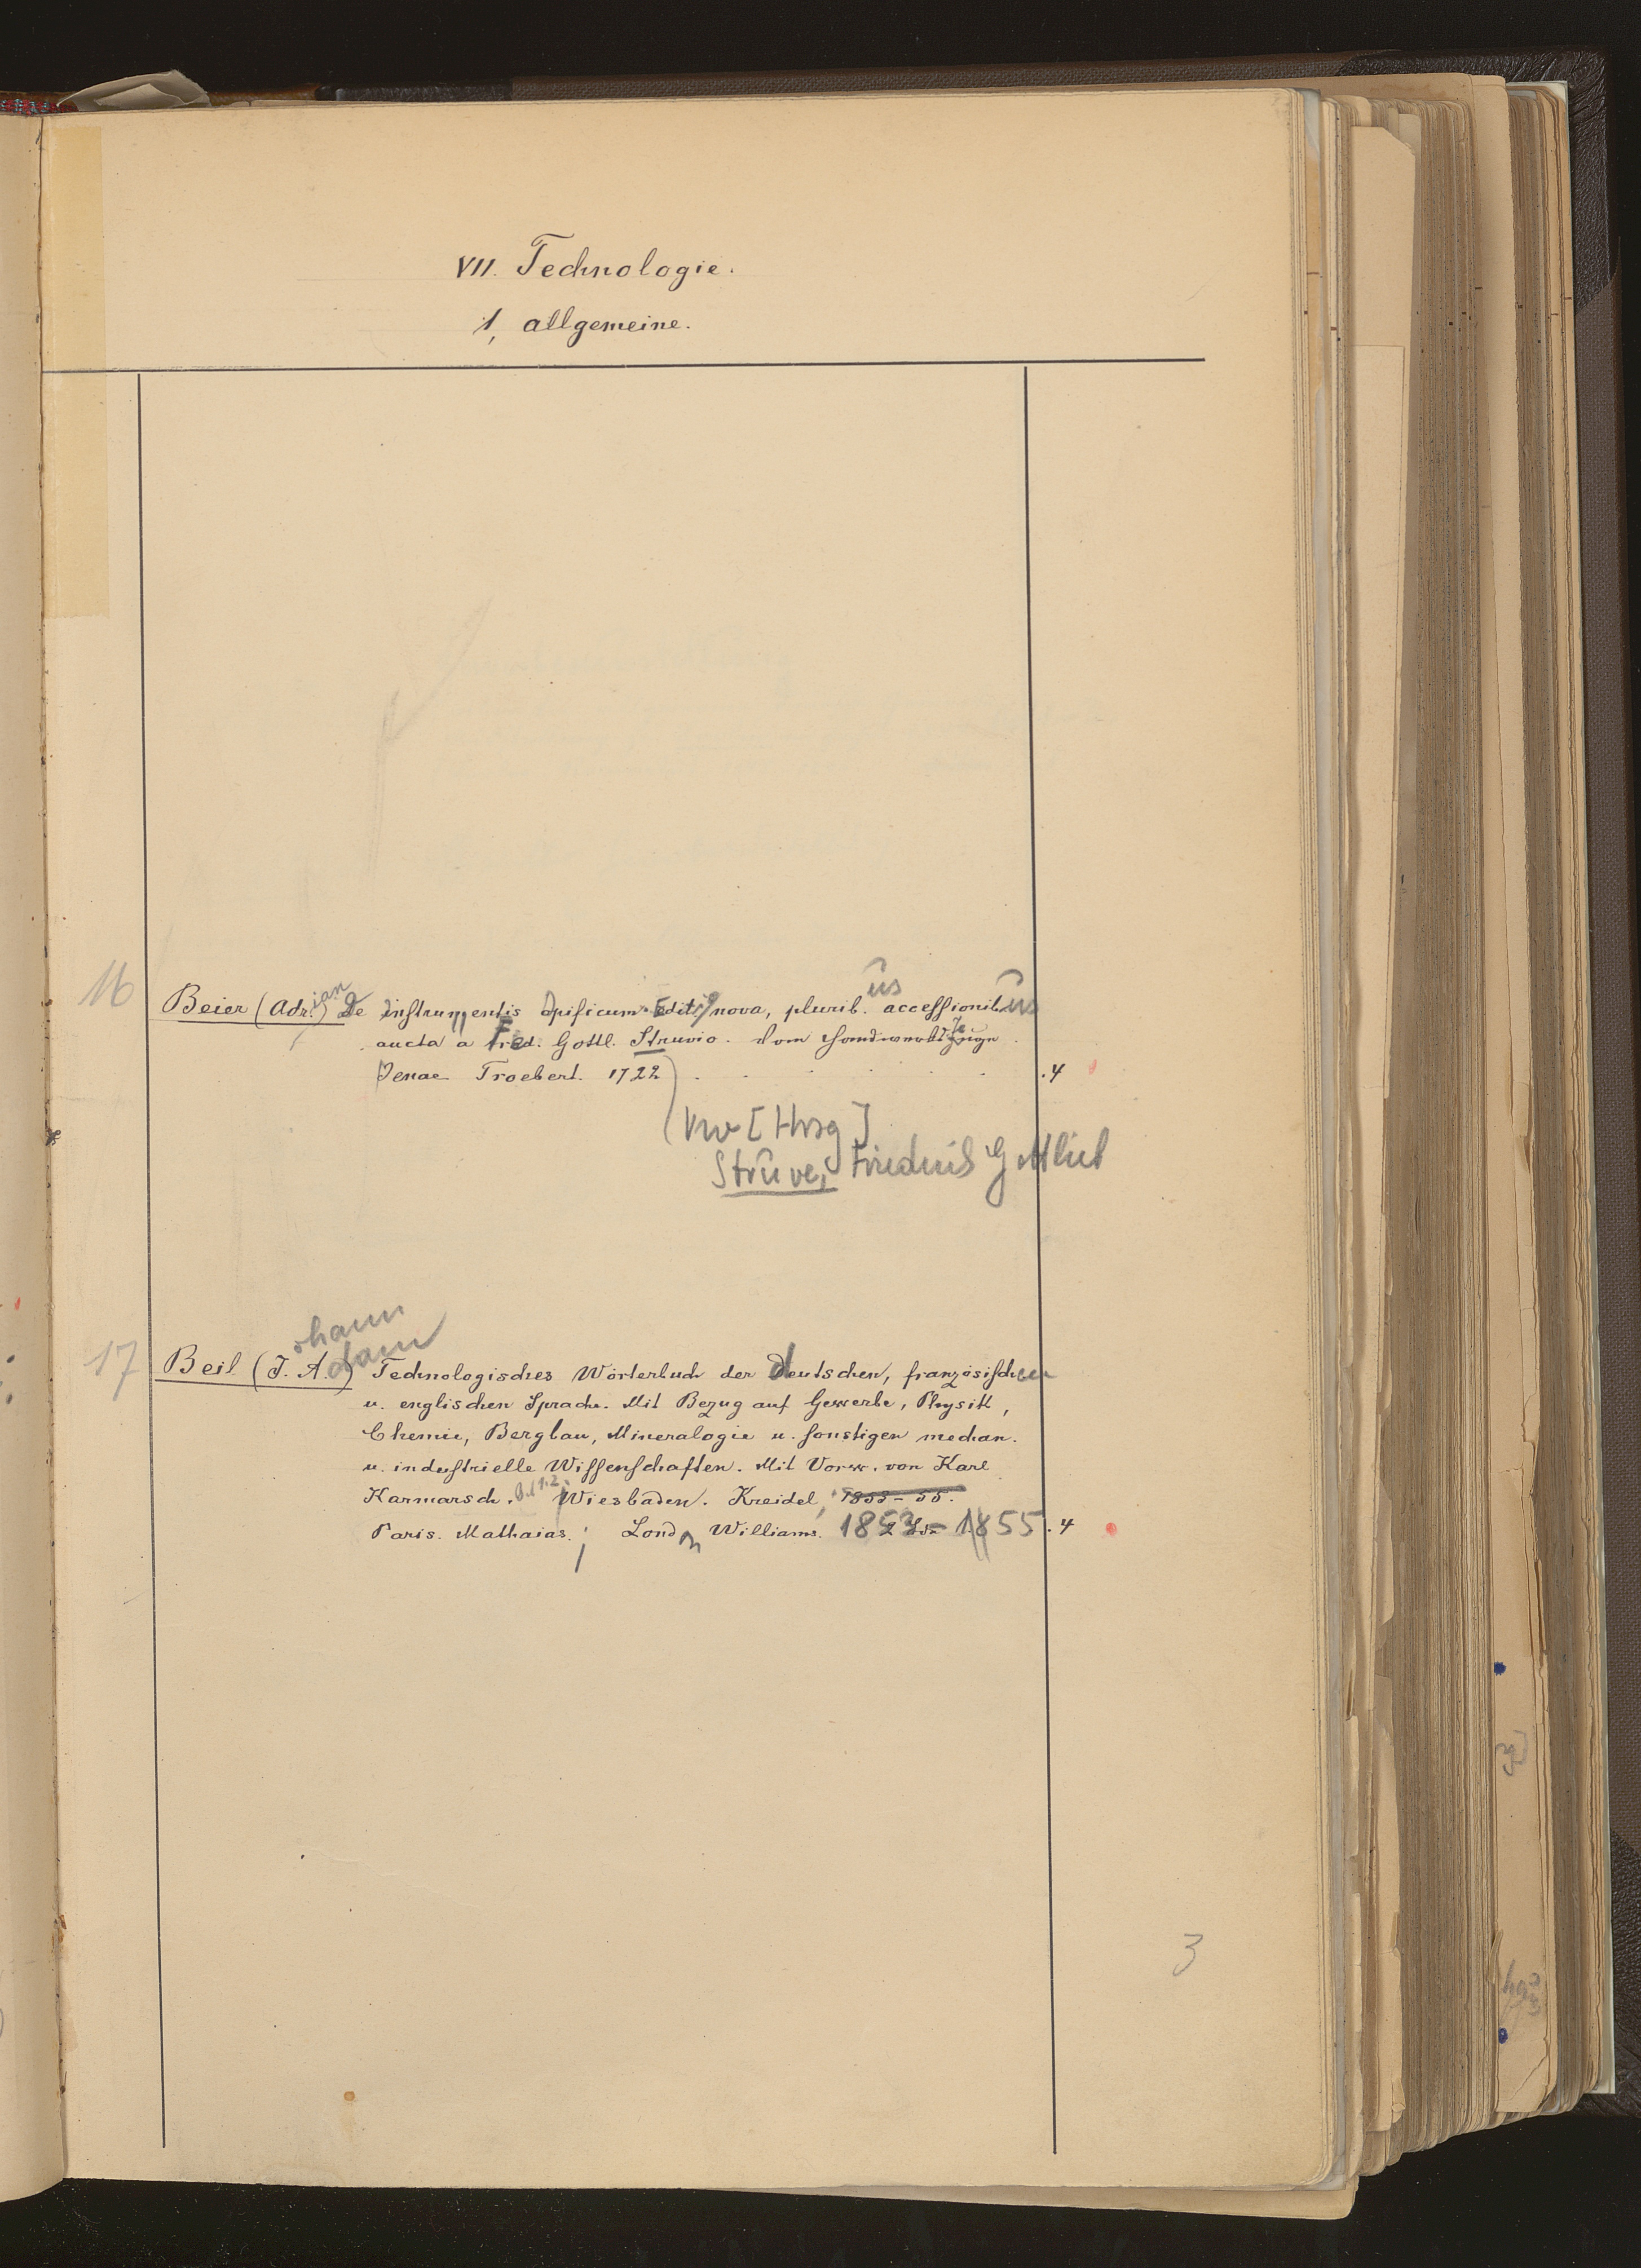 VII. Technologie.
1, allgemeine.
16
Beier (Adrian) De instrumentis opificum. Editio nova, pluribus accessionibus
aucta a Fred. Gottl. Struvio. Vom Handwerks Zeuge.
Jenae Troebert. 1722) .4
(VW [Hrsg]
Struve, Friedrich Gottlieb
17
Beil (Johann Adam) Technologisches Wörterbuch der deutschen, französischen
u. englischen Sprache. Mit Bezug auf Gewerbe, Physik,
Chemie, Bergbau, Mineralogie u. sonstigen mechan.
u. industrielle Wissenschaften. Mit Vorw. von Karl
Karmarsch. Bd 1.2. Wiesbaden. Kreidel, 1853-55.
Paris. Mathaias.; London Williams. 1853-1855 .4
3